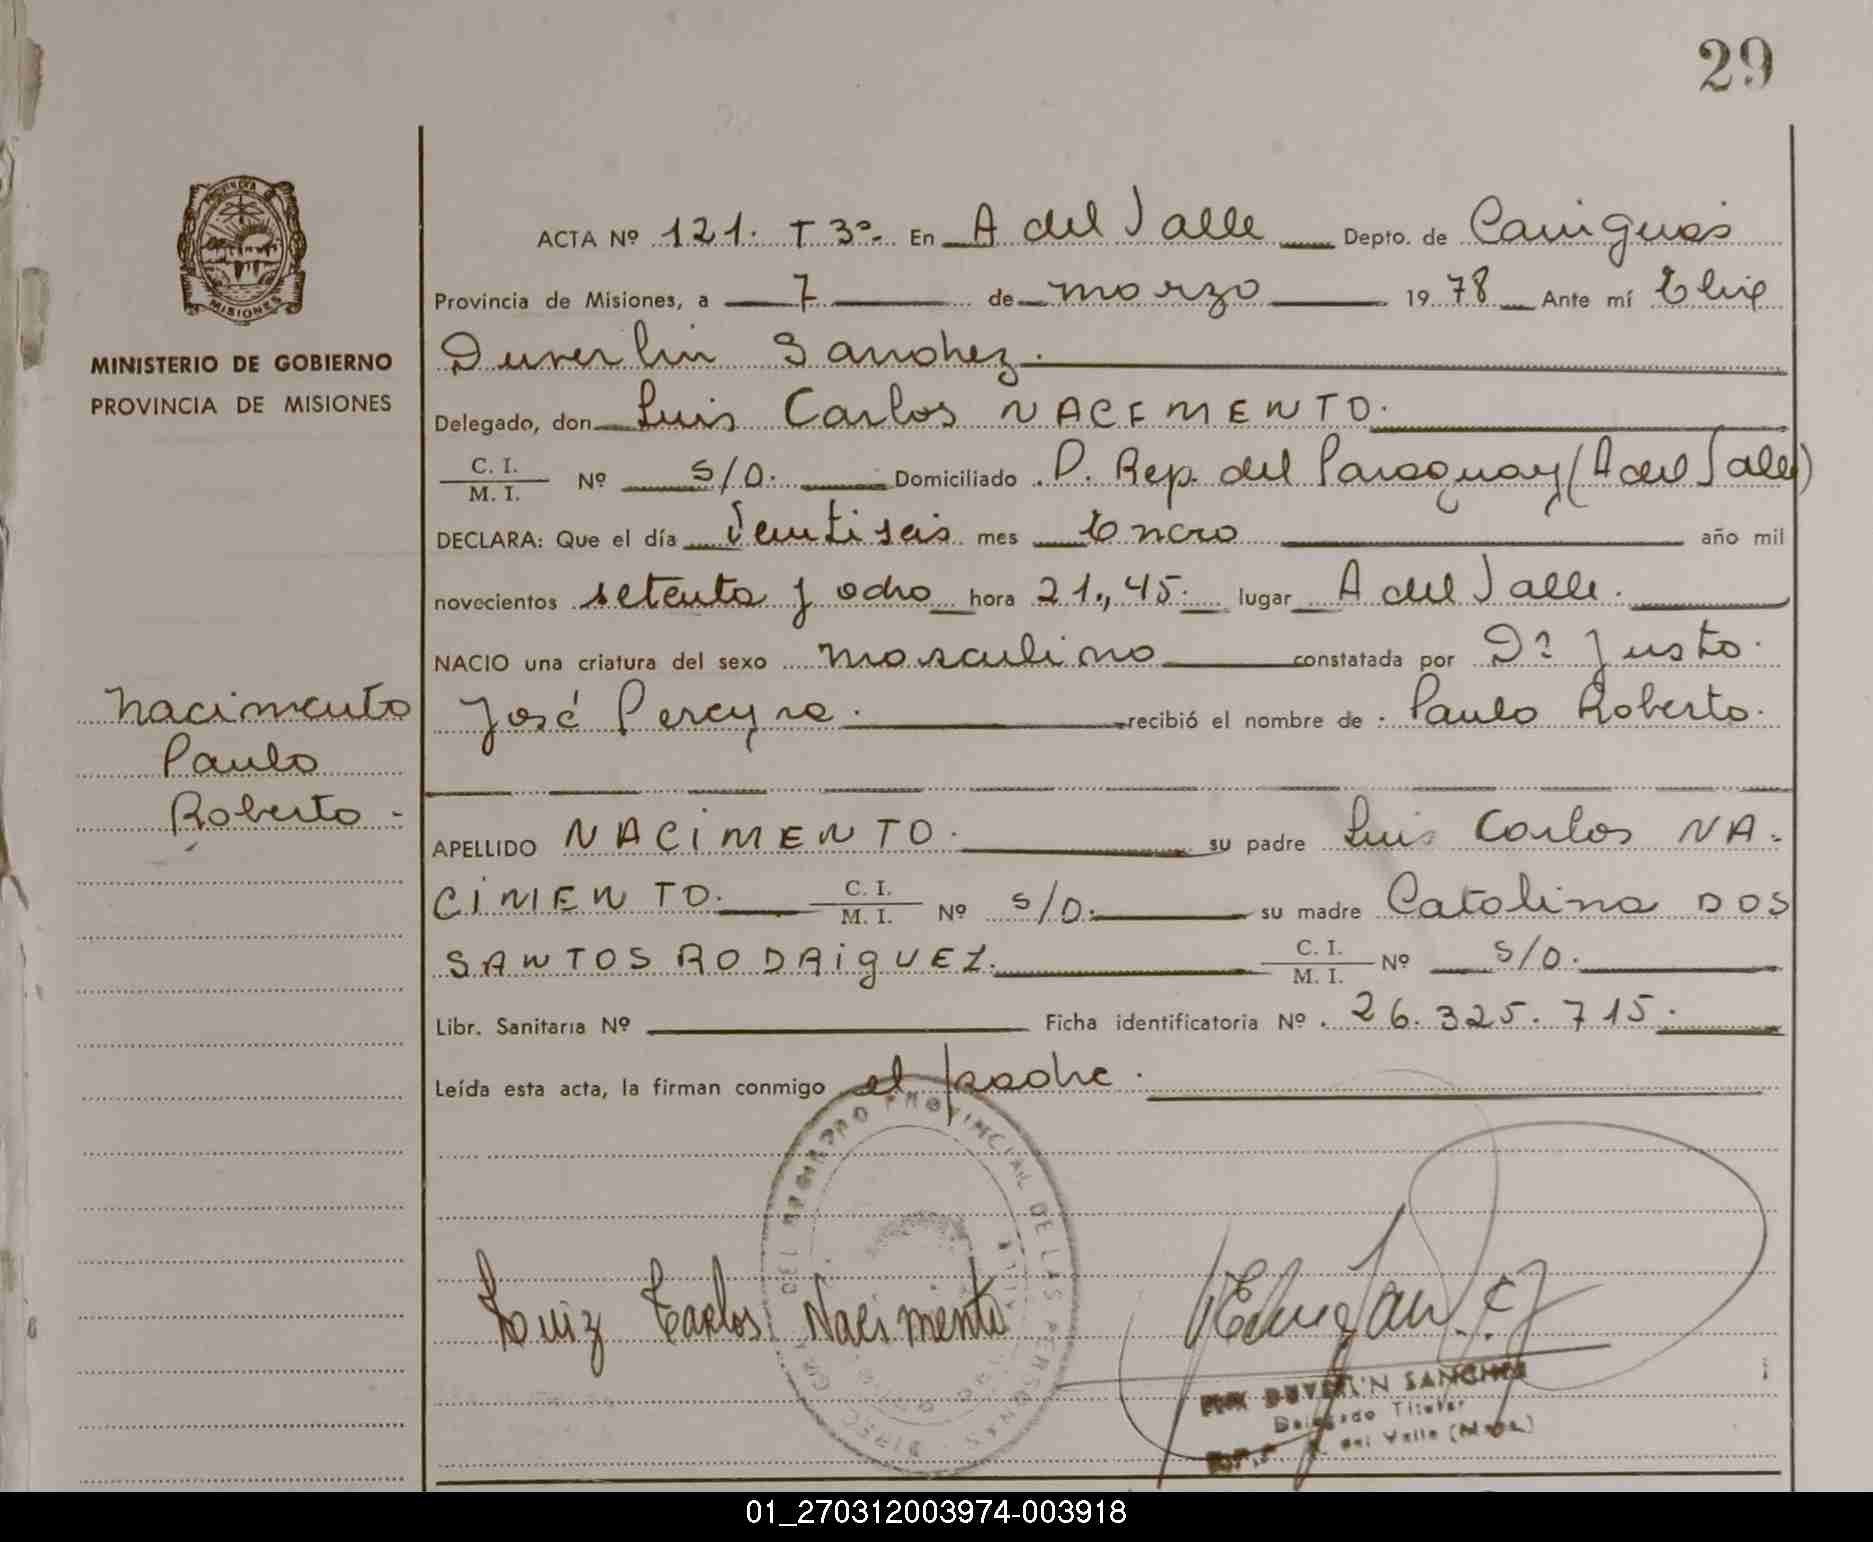 29
ACTA Nº 121. T 3º. En A del Valle Depto. de Cainguas
Provincia de Misiones, a 7 de marzo 1978 Ante mí Elix
Duverlin Sanchez.
Delegado, don Luis Carlos NACEMENTO.
C. I. / M. I. Nº S/D. Domiciliado P. Rep. del Paraguay (A del Valle)
DECLARA: Que el día Veintiseis mes Enero año mil
novecientos setenta y ocho hora 21,,45. lugar A del Valle.
NACIO una criatura del sexo masculino constatada por Dº Justo.
José Pereyra. recibió el nombre de Paulo Roberto.
APELLIDO NACIMENTO. su padre Luis Carlos NA-
CIMENTO. C. I. / M. I. Nº S/D. su madre Catalina DOS
SANTOS RODRIGUEZ. C. I. / M. I. Nº S/D.
Libr. Sanitaria Nº Ficha identificatoria Nº 26.325.715.
Leída esta acta, la firman conmigo el padre.
PROVINCIA DE
MISIONES
MINISTERIO DE GOBIERNO
PROVINCIA DE MISIONES
Nacimento
Paulo
Roberto -
PROVINCIAL DE LAS PERSONAS
Luiz Carlos Nacimento
DUVERLIN SANCHEZ
Delegado Titular
del Valle
01_270312003974-003918